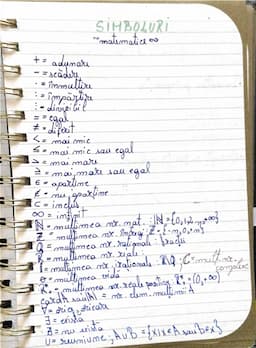 SIMBOLURI
~matematice∞
+ = adunare
- = scădere
· = înmulțire
: = împărțire
⋮ = divizibil
= = egal
≠ = diferit
< = mai mic
≤ = mai mic sau egal
> = mai mare
≥ = mai mare sau egal
∈ = aparține
∉ = nu aparține
⊂ = inclus
∞ = infinit
ℕ = mulțimea nr. nat. ℕ = {0,1,2,...∞}
ℤ = mulțimea nr. întregi
ℚ = mulțimea nr. raționali - fracții
ℝ = mulțimea nr. reale
= mulțimea nr. iraționale ℝ\ℚ ; C = mult. nr. complexe
= mulțimea vidă
= mulțimea nr. reale pozitiv = (0,+∞)
card A sau = nr. elem. mulțimii A
∀ = oricare
∃ = există
∄ = nu există
∪ = reuniune; A∪B = {x|x∈A sau B∋x}